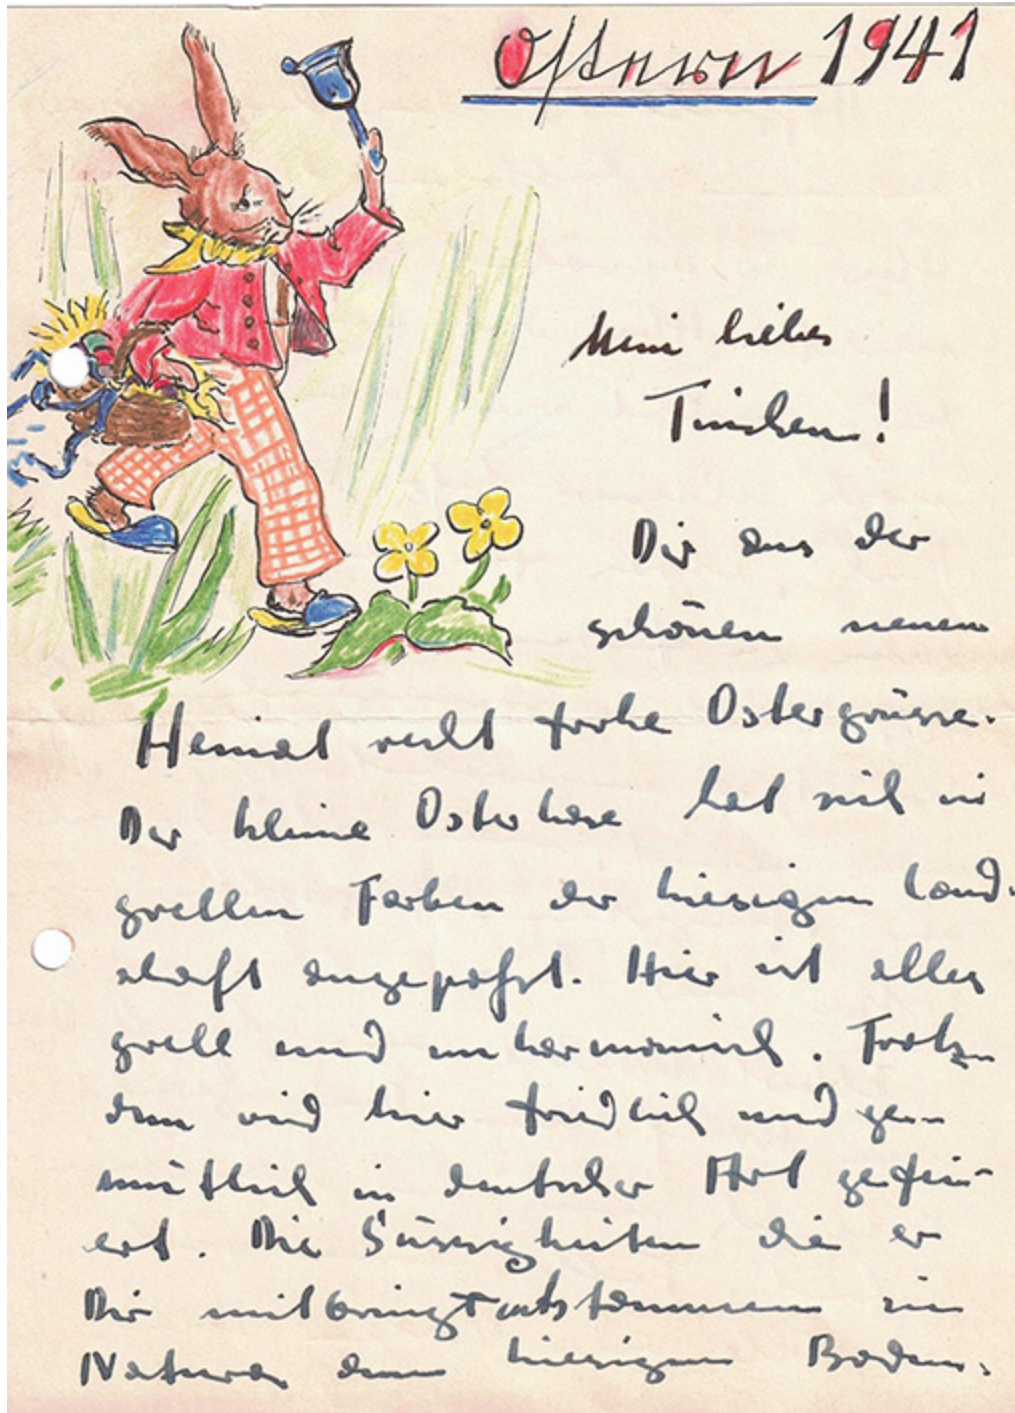 Ostern 1941
Mein liebes
Tinchen!
Dir aus der
schönen neuen
Heimat recht frohe Ostergrüsse.
Der kleine Osterhase hat sich in
grellen Farben der hiesigen Land-
schaft angepaßt. Hier ist alles
grell und unharmonisch. Trotz-
dem wird hier friedlich und ge-
mütlich in deutscher Art gefei-
ert. Die Süssigkeiten die er
Dir mitbringt entstammen in
Natura dem hiesigen Boden.